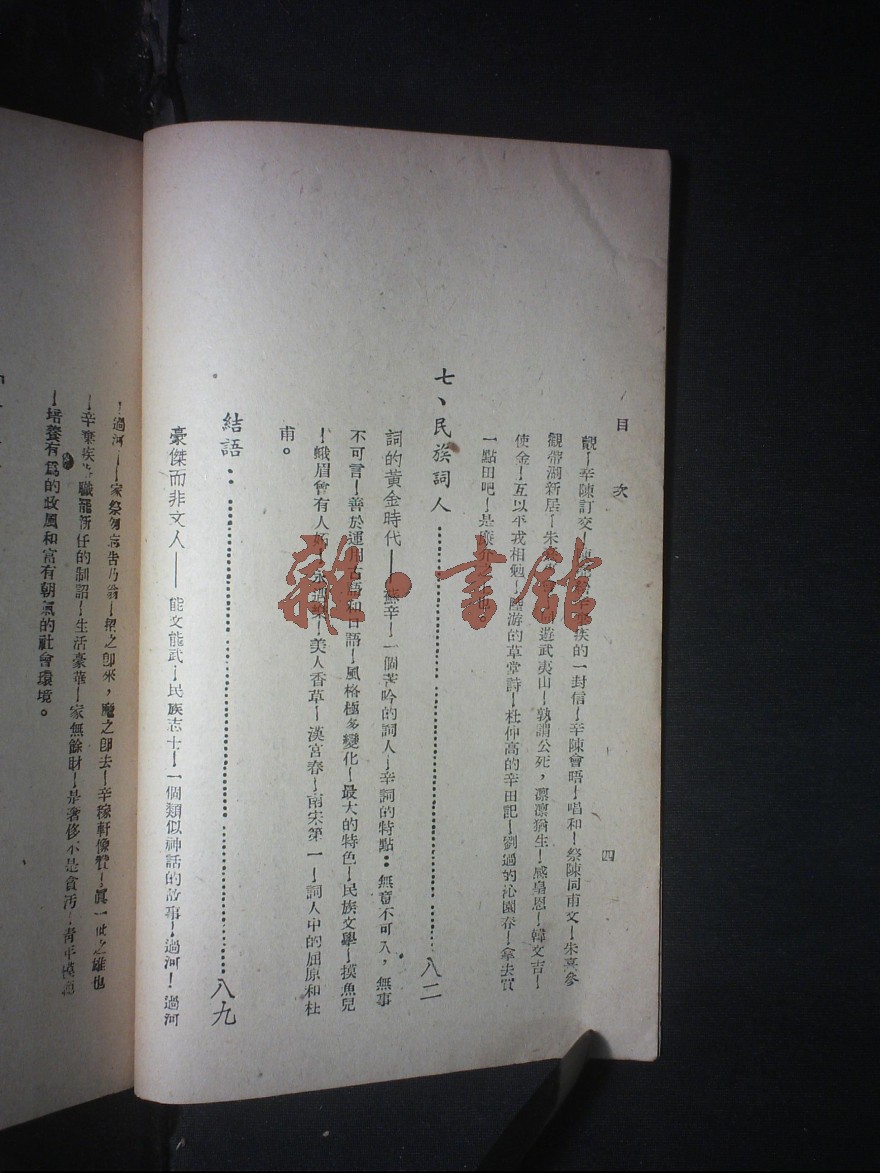 目次
四
觀—辛陳訂交—疾的一封信—辛陳會晤—唱和—祭陳同甫文—朱熹參
觀帶湖新居—朱遊武夷山—孰謂公死，凛凛猶生—感皇恩—韓文吉—
使金—互以平戎相勉—陸游的草堂詩—杜仲高的辛田記—劉過的沁園春—拿去買
一點田吧—是
七、民族詞人……八二
詞的黃金時代——蘇辛—一個苦吟的詞人—辛詞的特點：無意不可入，無事
不可言—善於運用古語和口語—風格極多變化—最大的特色—民族文學—摸魚兒
—蛾眉曾有人妬—永遇樂—美人香草—漢宮春—南宋第一—詞人中的屈原和杜
甫。
結語：……八九
豪傑而非文人——能文能武—民族志士—一個類似神話的故事—過河！過河
！過河！—家祭勿忘告乃翁—招之即來，麾之即去—辛稼軒像贊—眞一世之雄也
—辛棄疾職罷新任的制詔—生活豪華—家無餘財—是奢侈不是貪汚—青年模範
—培養有爲的政風和富有朝氣的社會環境。
雜·書館